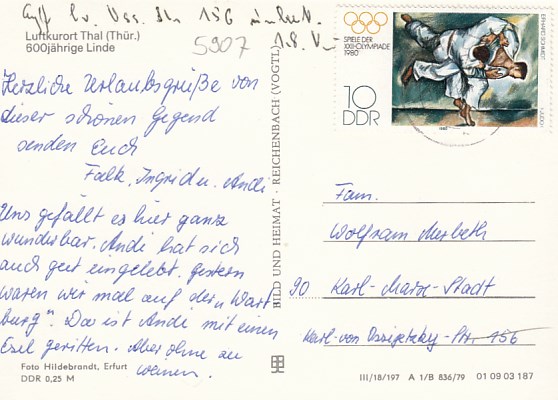 Luftkurort Thal (Thür.)
600jährige Linde
5907
Herzliche Urlaubsgrüße von
dieser schönen Gegend
senden Euch
Falk, Ingrid u. Andi
Uns gefällt es hier ganz
wunderbar. Andi hat sich
auch gut eingelebt. Gestern
waren wir mal auf der "Wart
burg". Da ist Andi mit einen
Esel geritten. Aber ohne zu
weinen.
Foto Hildebrandt, Erfurt
DDR 0,25 M
BILD UND HEIMAT · REICHENBACH (VOGTL)
SPIELE DER
XXII. OLYMPIADE
1980
10
DDR
Fam.
Wolfram Merbeth
90 Karl-Marx-Stadt
Karl-von Ossietzky-Str. 156
III/18/197 A 1/B 836/79 01 09 03 187